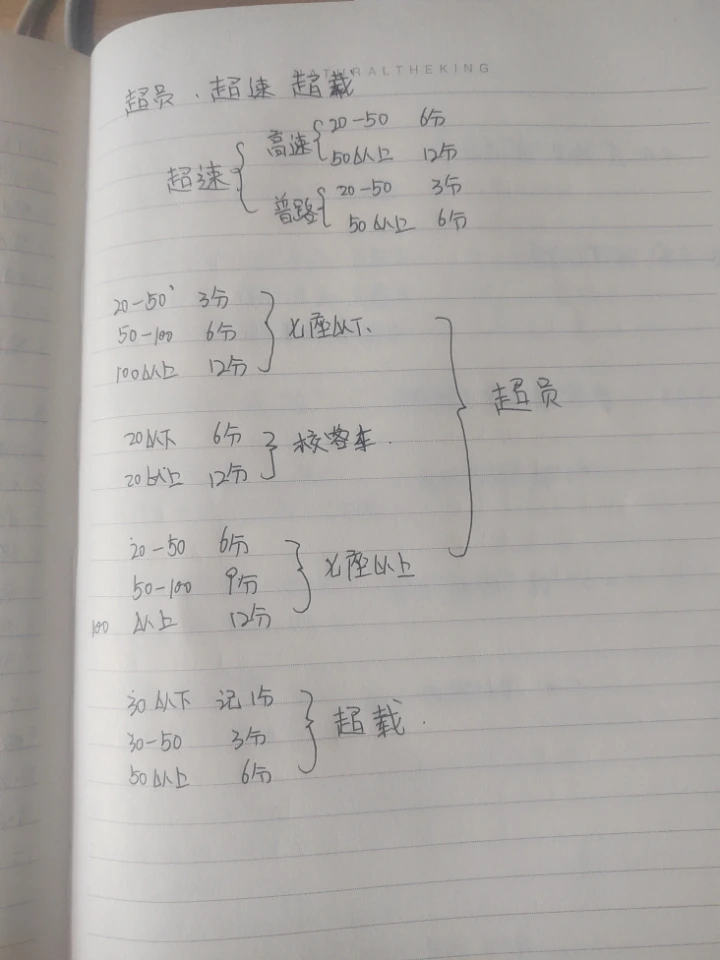 ATURALTHEKING
超员、超速 超载
超速
高速 20-50 6分
50以上 12分
普路 20-50 3分
50以上 6分
20-50 3分
50-100 6分 七座以下
100以上 12分
超员
20以下 6分 校客车
20以上 12分
20-50 6分
50-100 9分 七座以上
100 以上 12分
30以下 记1分
30-50 3分 超载
50以上 6分